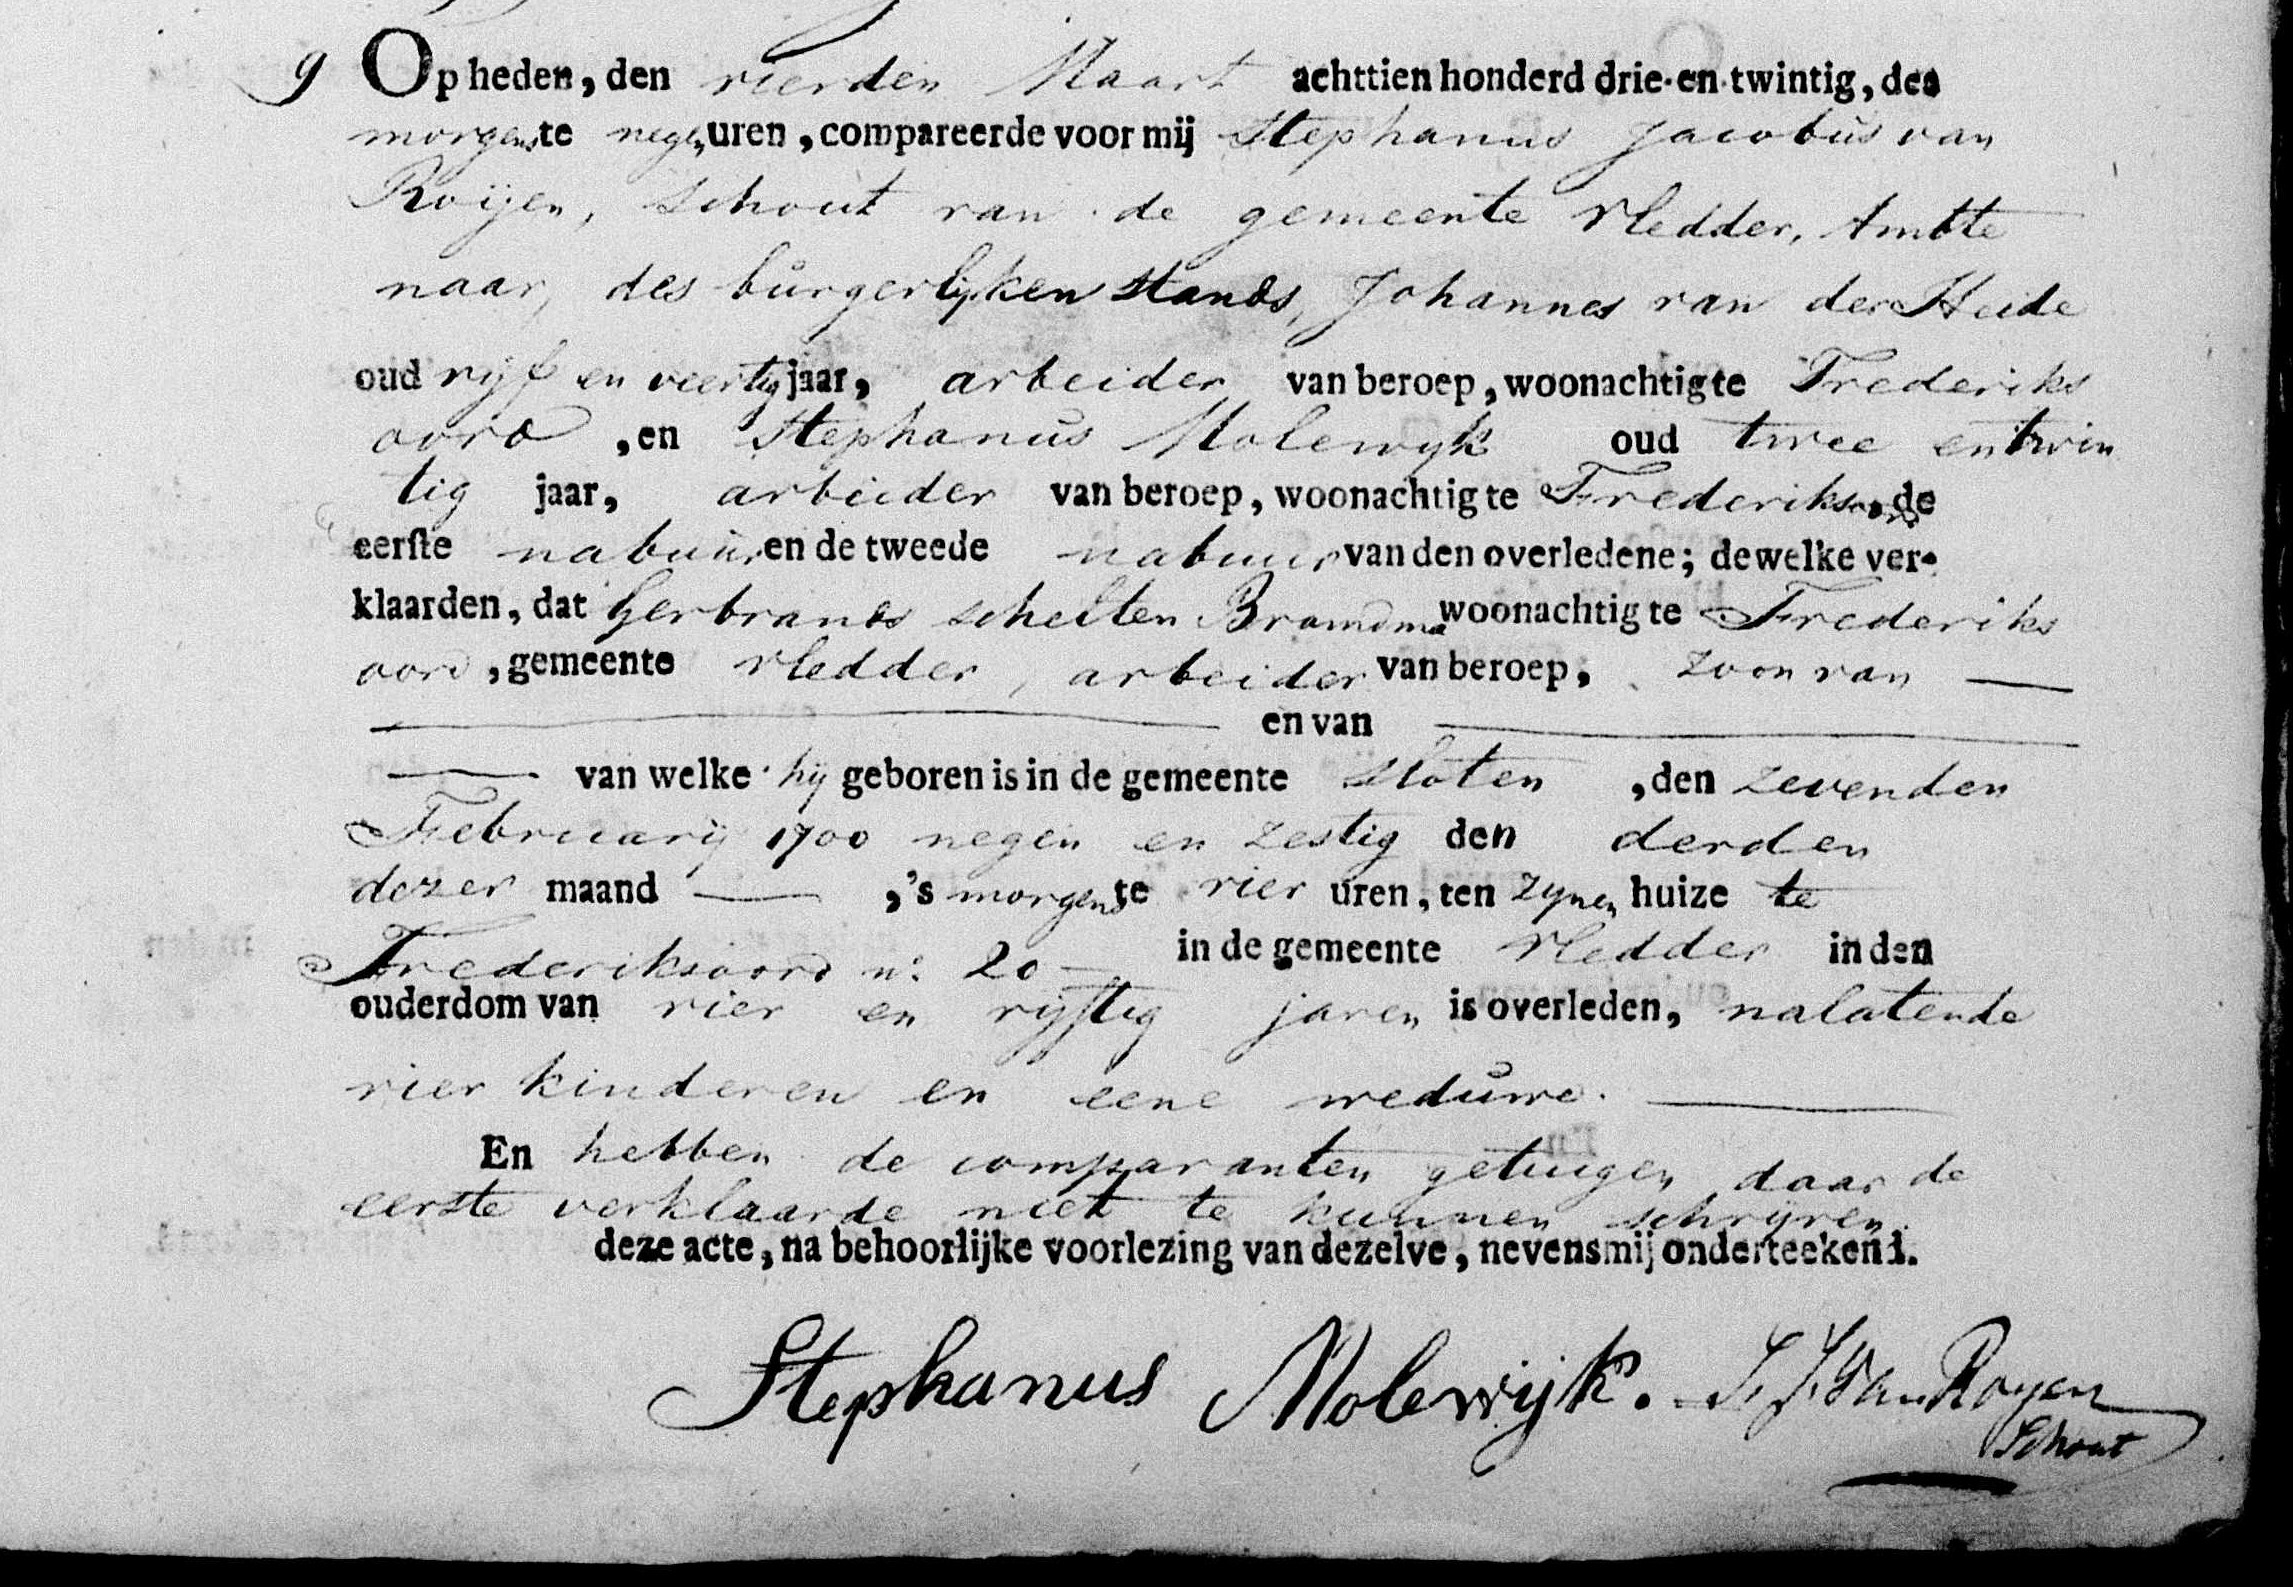 9 Op heden, den vierden Maart achttien honderd drie-en-twintig, des
morgens te negen uren, compareerde voor mij Stephanus Jacobus van
Roijen, Schout van de gemeente Vledder, Ambte
naar, des burgerlijken Stands, Johannes van der Heide
oud vijf en veertig jaar, arbeider van beroep, woonachtig te Frederiks
oord, en Stephanus Molewyk oud twee en twin
tig jaar, arbeider van beroep, woonachtig te Frederiksoord, de
eerste nabuur en de tweede nabuur van den overledene; dewelke ver-
klaarden, dat Gerbrands Schelten Brandma woonachtig te Frederiks
oord, gemeente Vledder, arbeider van beroep, zoon van —
— en van —
— van welke hij geboren is in de gemeente Sloten, den zevenden
Februarij 1700 negen en zestig den derden
dezer maand —, 's morgens te vier uren, ten zynen huize te
Frederiksoord n: 20 — in de gemeente Vledder in den
ouderdom van vier en vyftig jaren is overleden, nalatende
vier kinderen en eene weduwe. —
En hebben de comparanten getuigen daar de
eerste verklaarde niet te kunnen schryven.
deze acte, na behoorlijke voorlezing van dezelve, nevens mij onderteekend.
Stephanus Molewijk. S. J. Van Royen
Schout